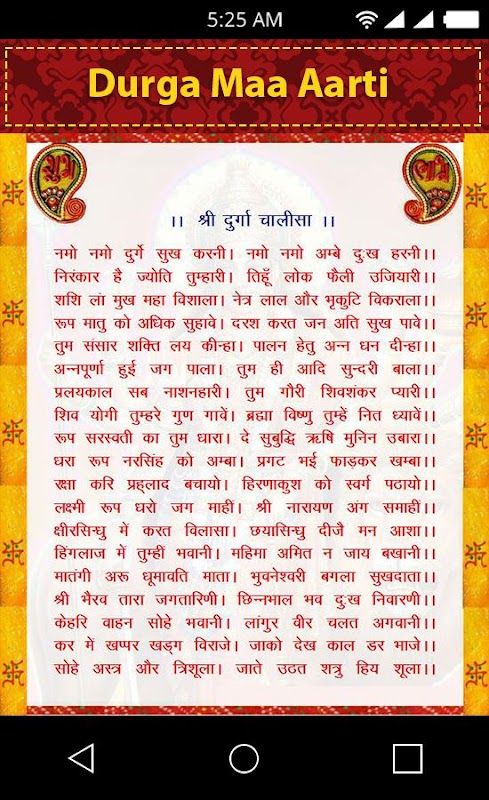 5:25 AM
Durga Maa Aarti
शुभ
।। श्री दुर्गा चालीसा ।।
नमो नमो दुर्गे सुख करनी। नमो नमो अम्बे दुःख हरनी।।
निरंकार है ज्योति तुम्हारी। तिहूँ लोक फैली उजियारी।।
शशि लां मुख महा विशाला। नेत्र लाल और भृकुटि विकराला।।
रूप मातु को अधिक सुहावे। दरश करत जन अति सुख पावे।।
तुम संसार शक्ति लय कीन्हा। पालन हेतु अन्न धन दीन्हा।।
अन्नपूर्णा हुई जग पाला। तुम ही आदि सुन्दरी बाला।।
प्रलयकाल सब नाशनहारी। तुम गौरी शिवशंकर प्यारी।।
शिव योगी तुम्हरे गुण गावें। ब्रह्मा विष्णु तुम्हें नित ध्यावें।।
रूप सरस्वती का तुम धारा। दे सुबुद्धि ऋषि मुनिन उबारा।।
धरा रूप नरसिंह को अम्बा। प्रगट भई फाड़कर खम्बा।।
रक्षा करि प्रह्लाद बचायो। हिरणाकुश को स्वर्ग पठायो।।
लक्ष्मी रूप धरो जग माहीं। श्री नारायण अंग समाहीं।।
क्षीरसिन्धु में करत विलासा। छयासिन्धु दीजै मन आशा।।
हिंगलाज में तुम्हीं भवानी। महिमा अमित न जाय बखानी।।
मातंगी अरू धूमावति माता। भुवनेश्वरी बगला सुखदाता।।
श्री भैरव तारा जगतारिणी। छिन्नभाल भव दुःख निवारणी।।
केहरि वाहन सोहे भवानी। लांगुर वीर चलत अगवानी।।
कर में खप्पर खड़्ग विराजे। जाको देख काल डर भाजे।।
सोहे अस्त्र और त्रिशूला। जाते उठत शत्रु हिय शूला।।